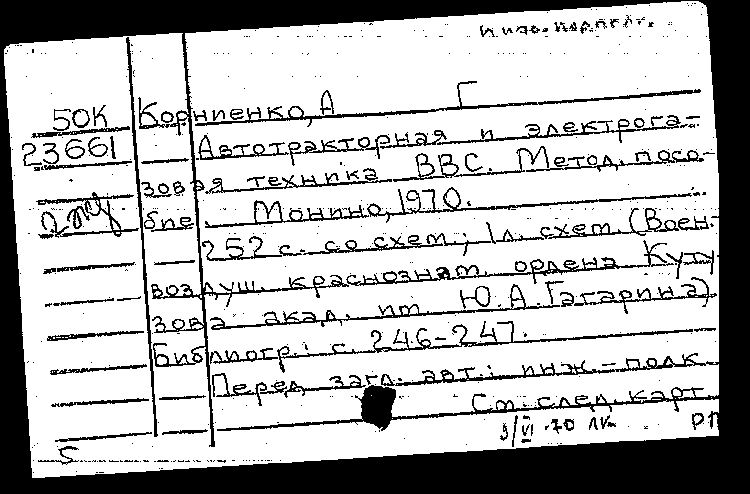 50К Корниенко, А Г
23661 Автотракторная и электрога-
зовая техника ВВС. Метод. посо-
2 экз. бие. Монино, 1970.
252 с. со схем.; 1л. схем. (Воен.-
воздуш. краснознам. ордена Куту-
зова акад. им. Ю.А. Гагарина)
Библиогр.: с. 246-247.
Перед загл. авт.: инж.-полк.
См. след. карт.
5